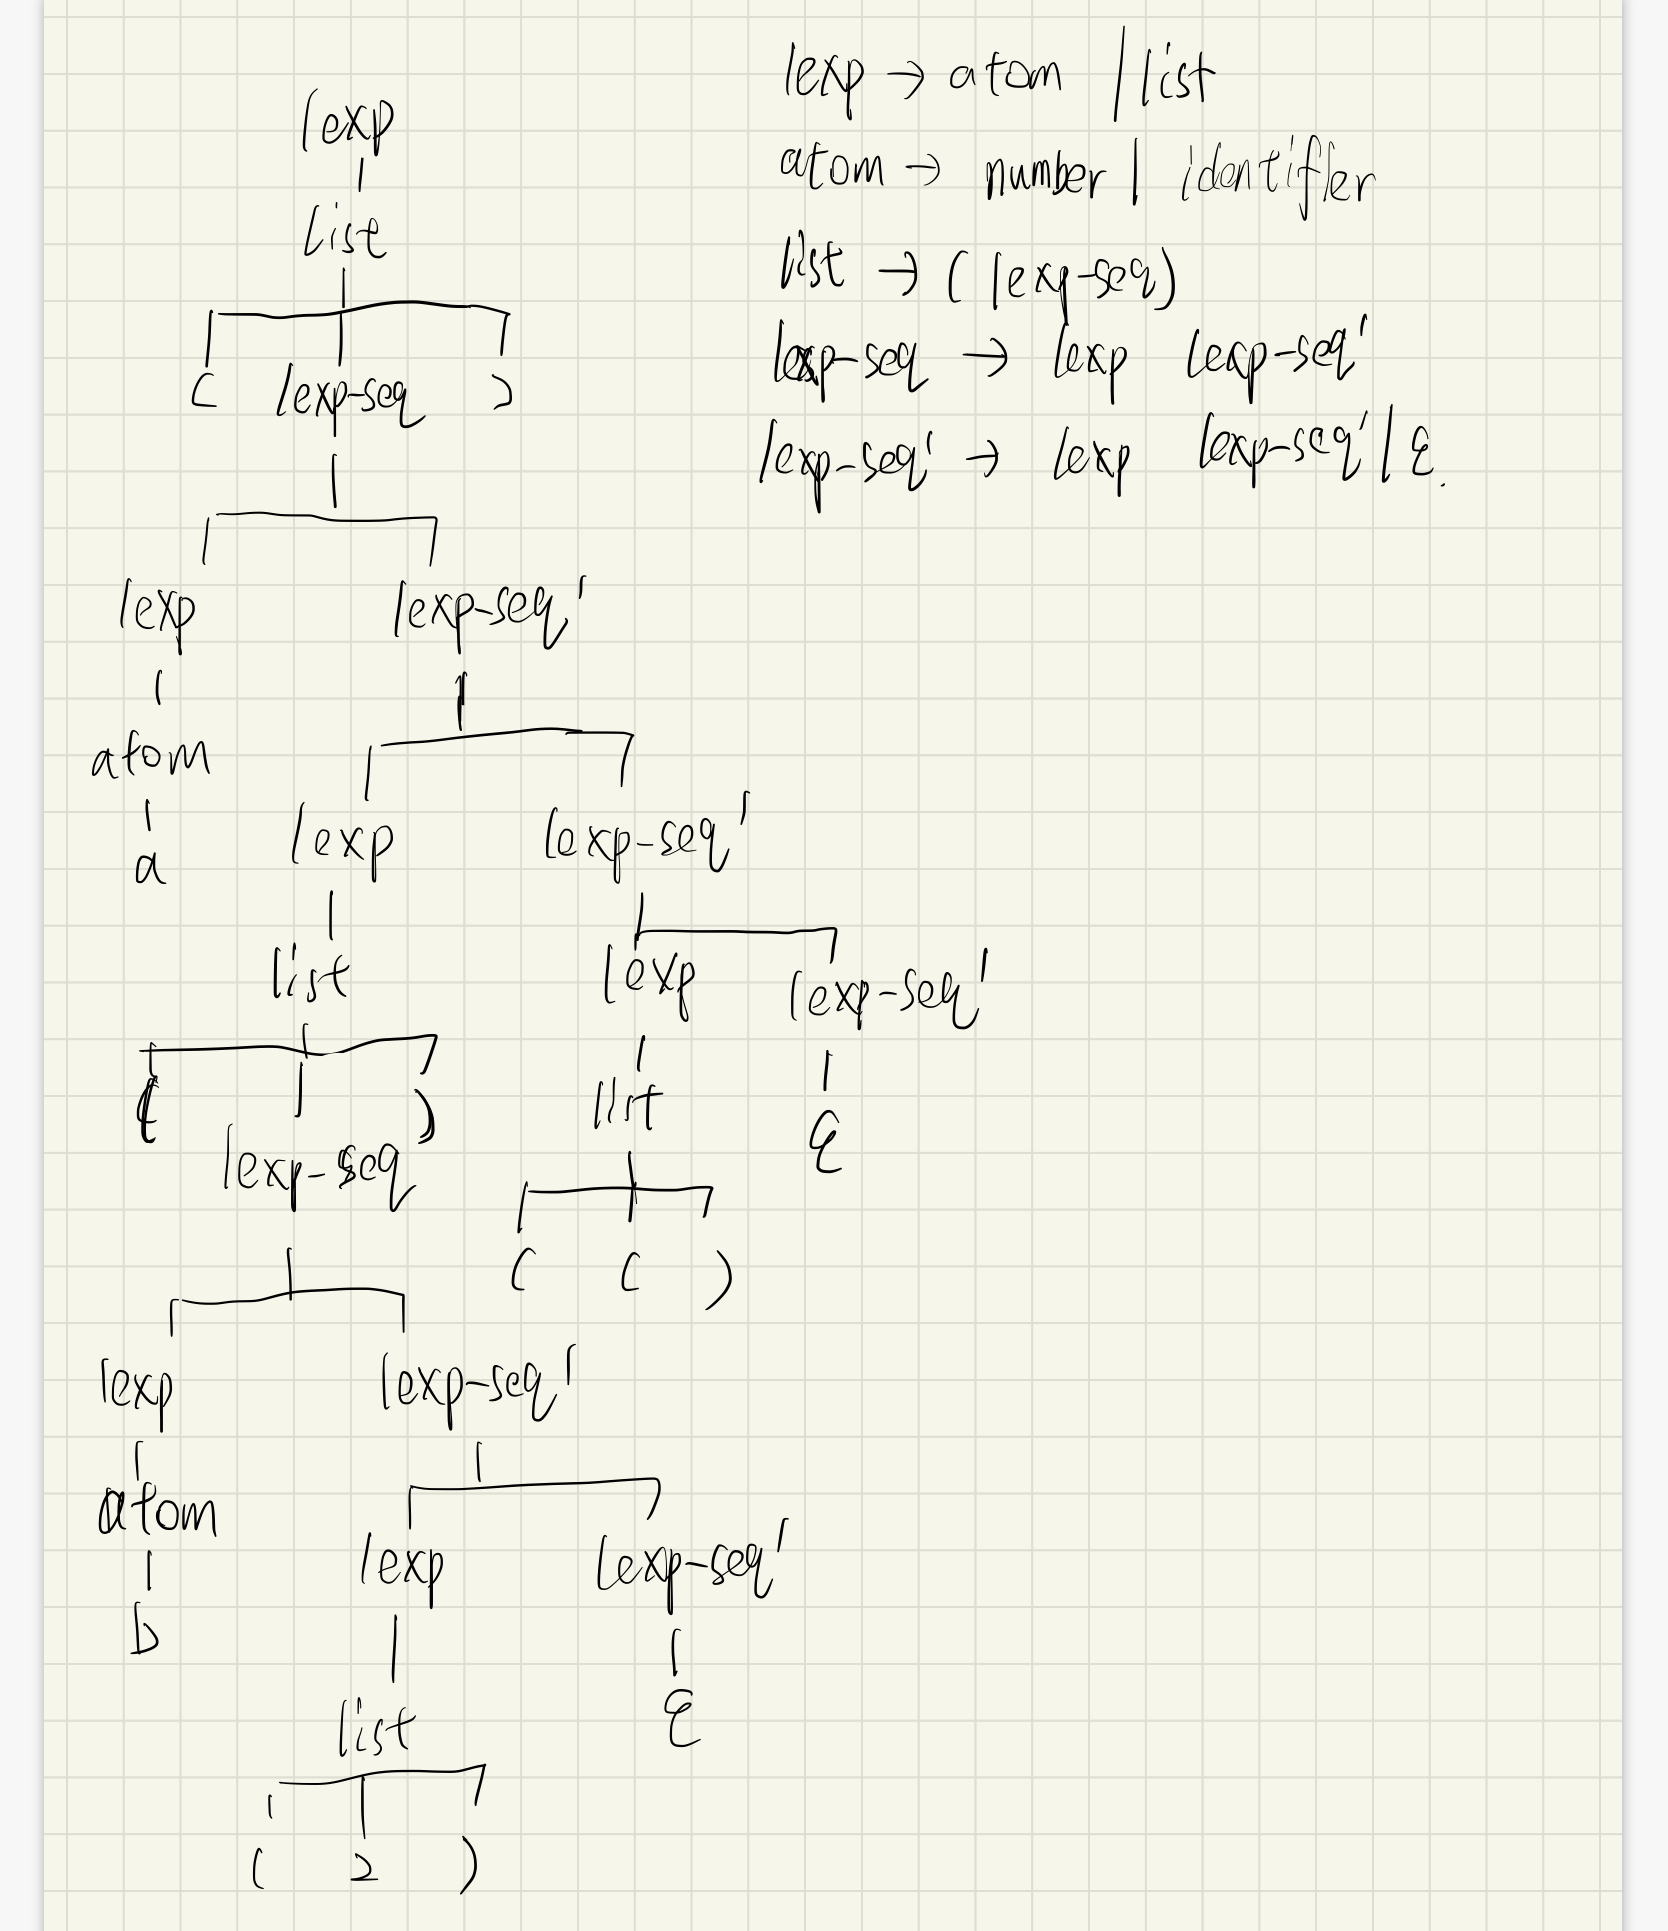 lexp → atom | list
atom → number | identifier
list → ( lexp-seq )
lexp-seq → lexp lexp-seq'
lexp-seq' → lexp lexp-seq' | ε.
lexp
list
( lexp-seq )
lexp lexp-seq'
atom
a
lexp lexp-seq'
list
( )
lexp-seq
lexp lexp-seq'
list
ε
( c )
lexp lexp-seq'
atom
b
lexp lexp-seq'
list
ε
( 2 )